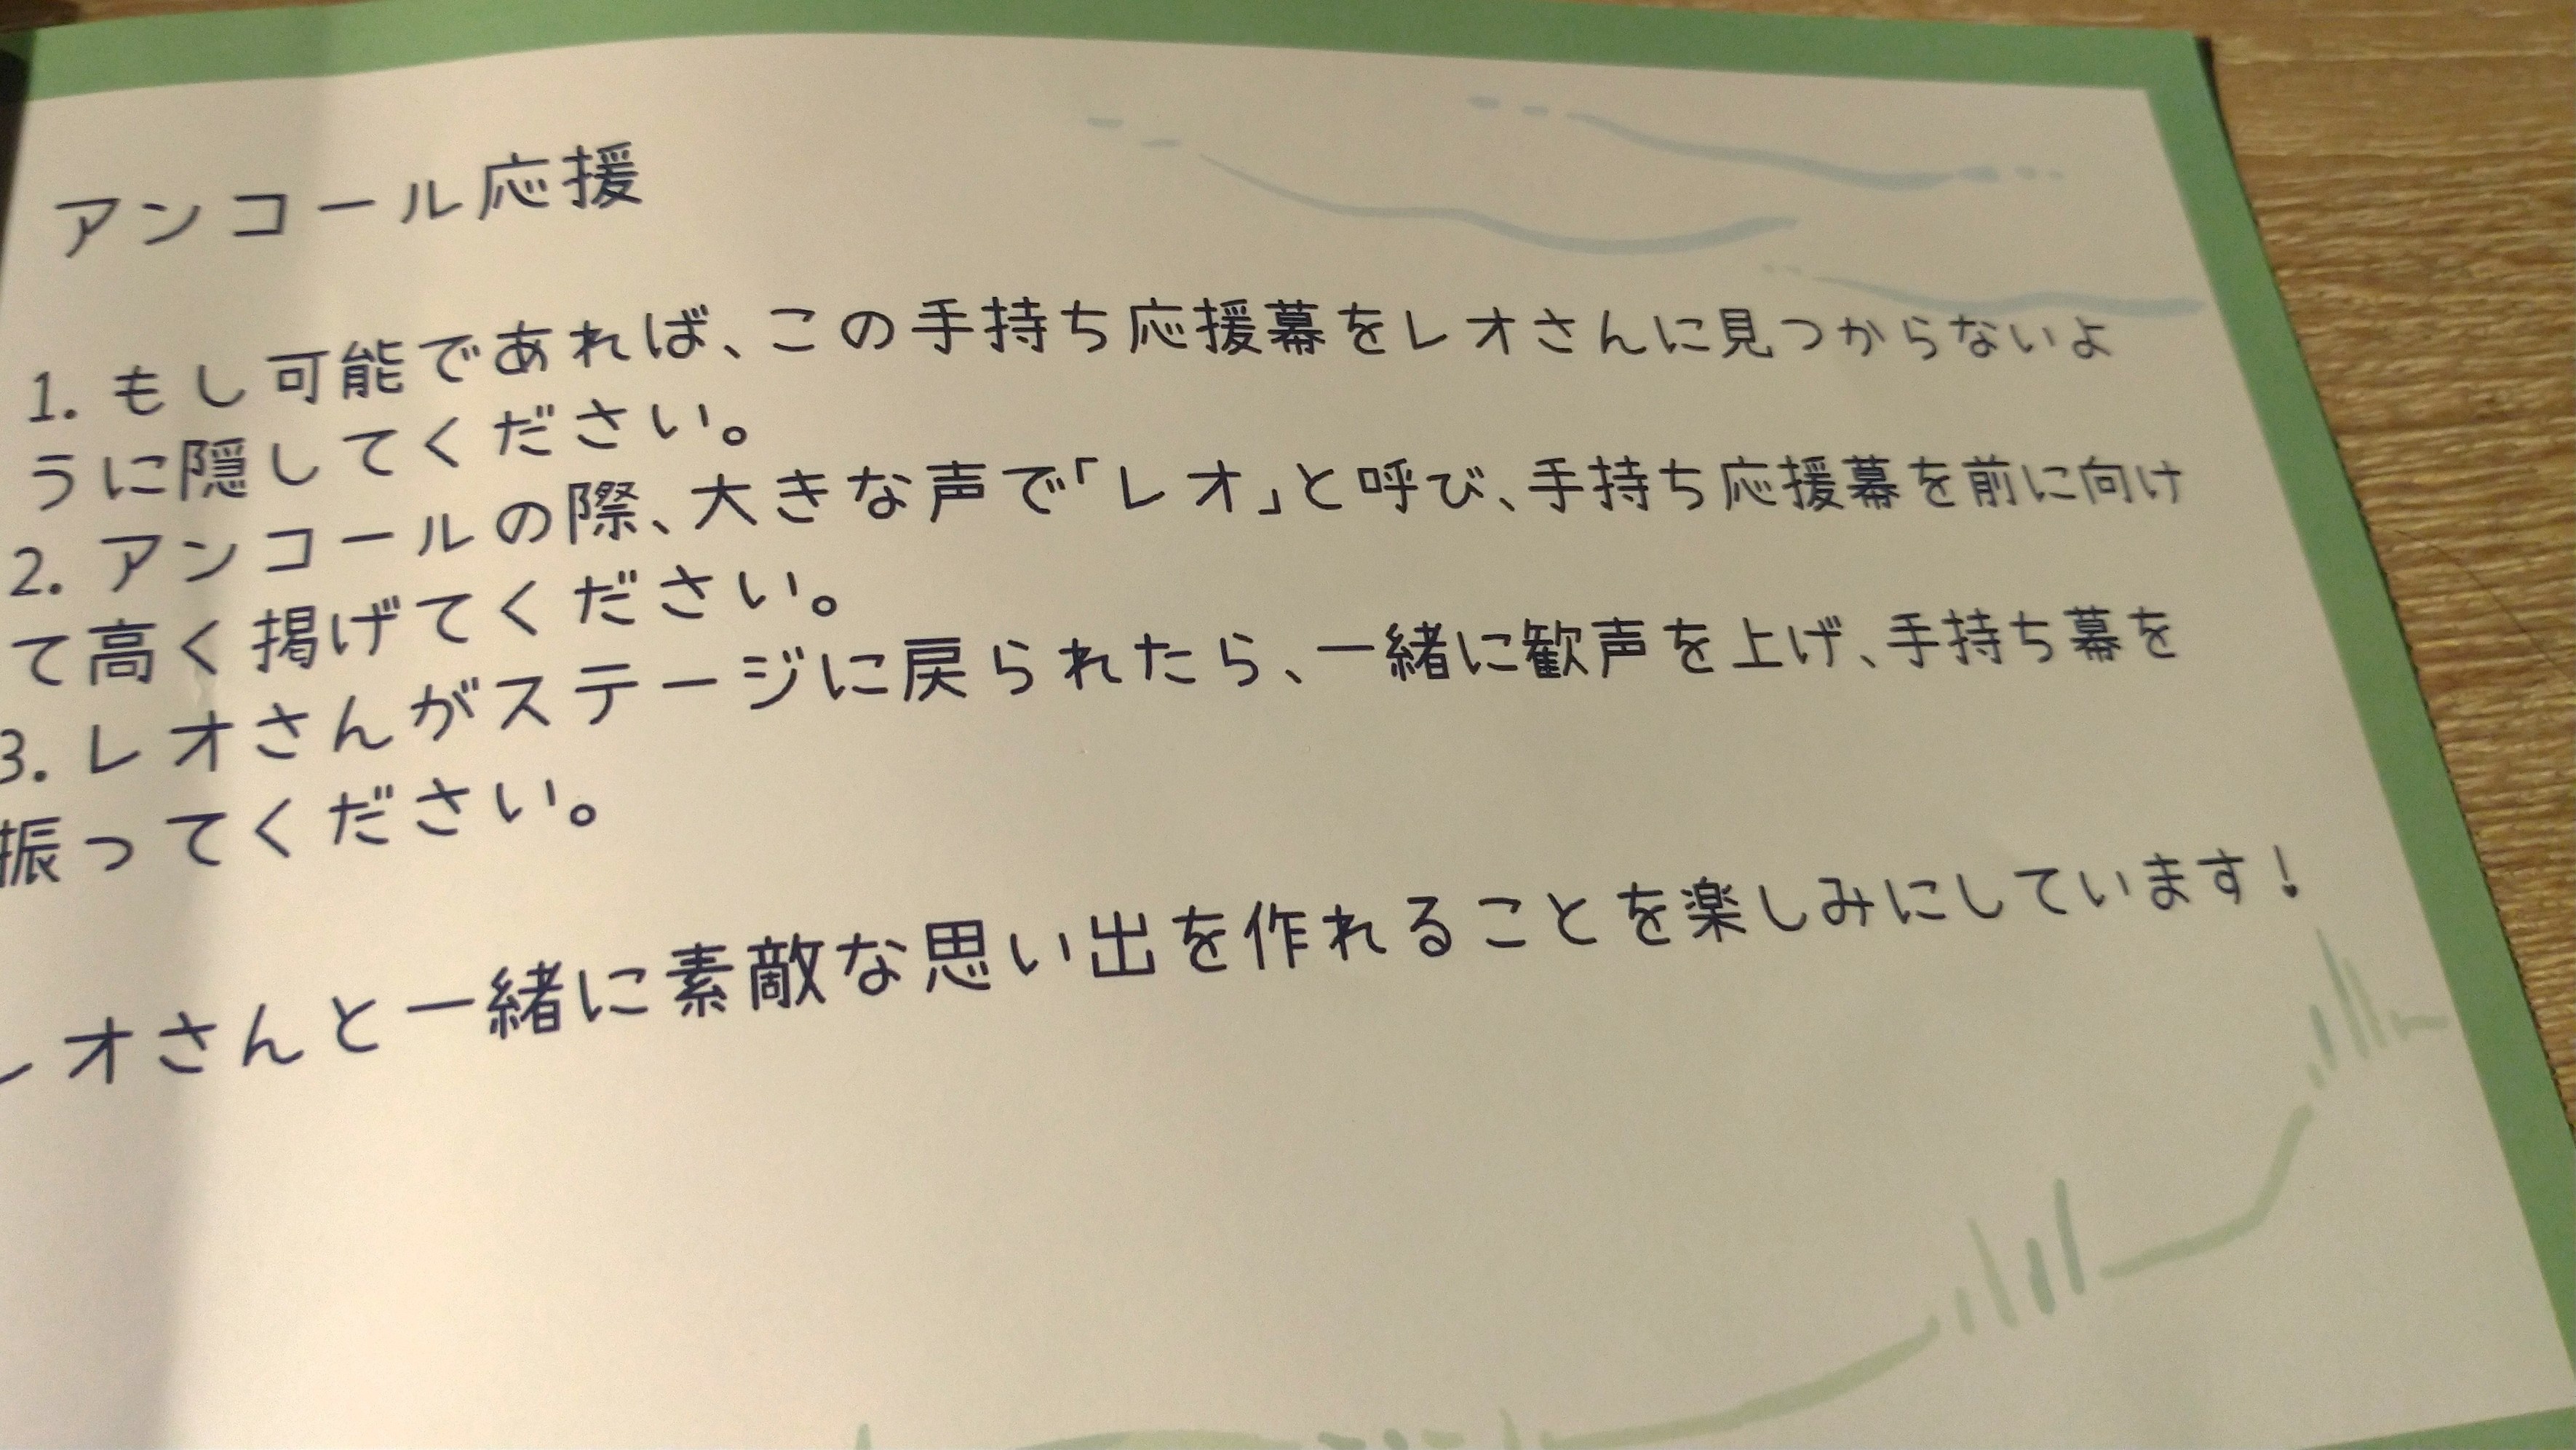 アンコール応援
1. もし可能であれば、この手持ち応援幕をレオさんに見つからないよ
うに隠してください。
2. アンコールの際、大きな声で「レオ」と呼び、手持ち応援幕を前に向け
て高く掲げてください。
3. レオさんがステージに戻られたら、一緒に歓声を上げ、手持ち幕を
振ってください。
レオさんと一緒に素敵な思い出を作れることを楽しみにしています！